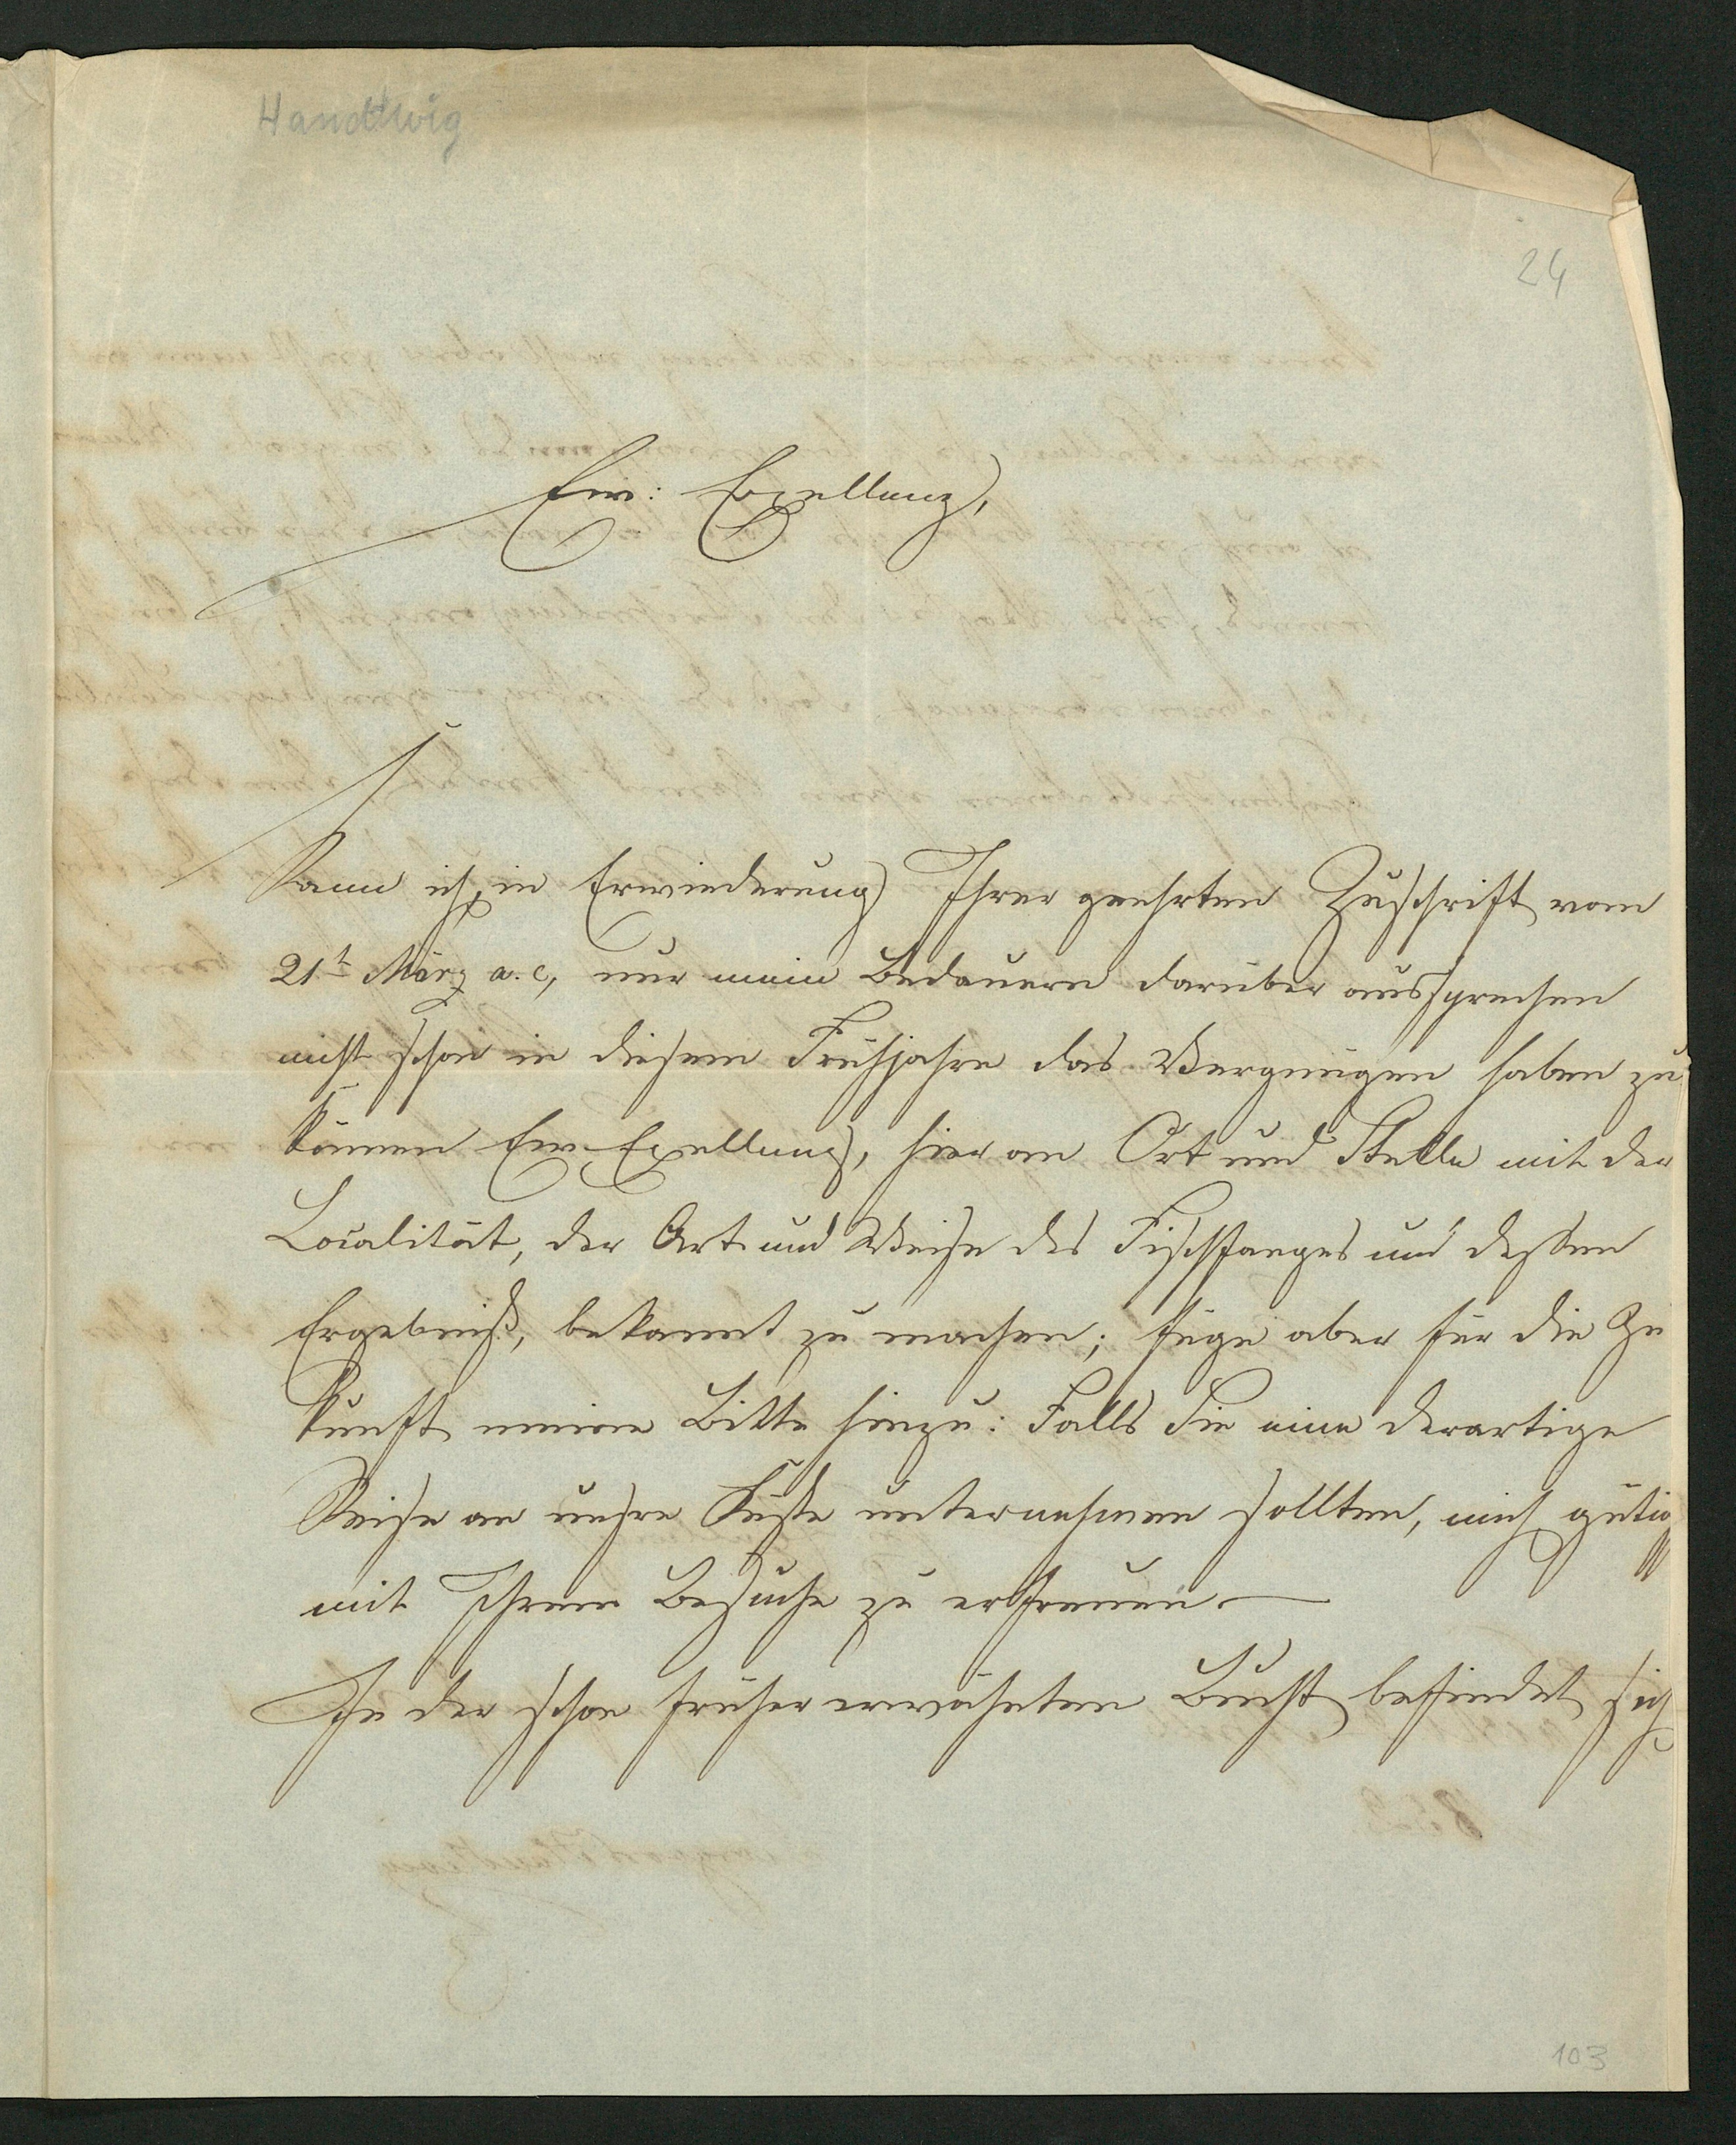 Handtwig
24
Ew: Exellenz,
Kann ich, in Erwiederung Ihrer geehrten Zuschrift vom
21t März a. c, nur mein Bedauern darüber aussprechen
nicht schon in diesem Frühjahre das Vergnügen haben zu
können Ew Exellenz, hier an Ort und Stelle mit der
Localität, der Art und Weise des Fischfanges und dessen
Ergebniß, bekannt zu machen; füge aber für die Zu
kunft meine Bitte hinzu: Falls Sie eine derartige
Reise an unsre Küste unternehmen sollten, mich gütig
mit Ihrem Besuche zu erfreuen. —
In der schon früher erwähnten Bucht befindet sich
103